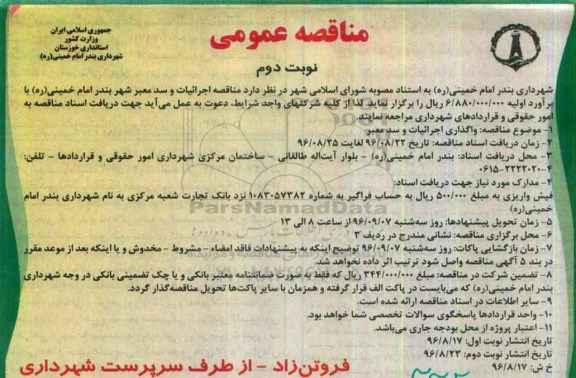 جمهوری اسلامی ایران
وزارت کشور
استانداری خوزستان
شهرداری بندر امام خمینی(ره)
مناقصه عمومی
نوبت دوم
شهرداری بندر امام خمینی(ره) به استناد مصوبه شورای اسلامی شهر در نظر دارد مناقصه اجرائیات و سد معبر شهر بندر امام خمینی(ره) با
برآورد اولیه ۶/۸۸۰/۰۰۰/۰۰۰ ریال را برگزار نماید. لذا از کلیه شرکتهای واجد شرایط، دعوت به عمل می‌آید جهت دریافت اسناد مناقصه به
امور حقوقی و قراردادهای شهرداری مراجعه نمایند.
۱- موضوع مناقصه: واگذاری اجرائیات و سد معبر
۲- زمان دریافت اسناد مناقصه: تاریخ ۹۶/۰۸/۲۲ لغایت ۹۶/۰۸/۲۵
۳- محل دریافت اسناد: بندر امام خمینی(ره) - بلوار آیت‌اله طالقانی - ساختمان مرکزی شهرداری امور حقوقی و قراردادها - تلفن:
۰۶۱۵-۲۲۲۲۰۲۰-۴
۴- مدارک مورد نیاز جهت دریافت اسناد:
فیش واریزی به مبلغ ۵۰۰/۰۰۰ ریال به حساب فراگیر به شماره ۱۰۸۳۰۵۷۳۸۲ نزد بانک تجارت شعبه مرکزی به نام شهرداری بندر امام
خمینی(ره)
ParsNamadData
۵- زمان تحویل پیشنهادها: روز سه‌شنبه ۹۶/۰۹/۰۷ از ساعت ۸ الی ۱۳
۶- محل برگزاری مناقصه: نشانی مندرج در ردیف ۳
۷- زمان بازگشایی پاکات: روز سه‌شنبه ۹۶/۰۹/۰۷ توضیح اینکه به پیشنهادات فاقد امضاء - مشروط - مخدوش و یا اینکه بعد از موعد مقرر
در بند ۵ آگهی مناقصه واصل شود ترتیب اثر داده نخواهد شد.
۸- تضمین شرکت در مناقصه: مبلغ ۳۴۴/۰۰۰/۰۰۰ ریال که فقط به صورت ضمانتنامه معتبر بانکی و یا چک تضمینی بانکی در وجه شهرداری
بندر امام خمینی(ره) که می‌بایست در پاکت الف قرار گرفته و همزمان با سایر پاکت‌ها تحویل مناقصه‌گذار گردد.
۹- سایر اطلاعات در اسناد مناقصه ارائه شده است.
۱۰- واحد قراردادها پاسخگوی سوالات تخصصی شما خواهد بود.
۱۱- اعتبار پروژه از محل بودجه جاری می‌باشد.
تاریخ انتشار نوبت اول: ۹۶/۸/۱۷
تاریخ انتشار نوبت دوم: ۹۶/۸/۲۳
خ ش: ۹۶/۸/۱۷
فروتن‌زاد - از طرف سرپرست شهرداری